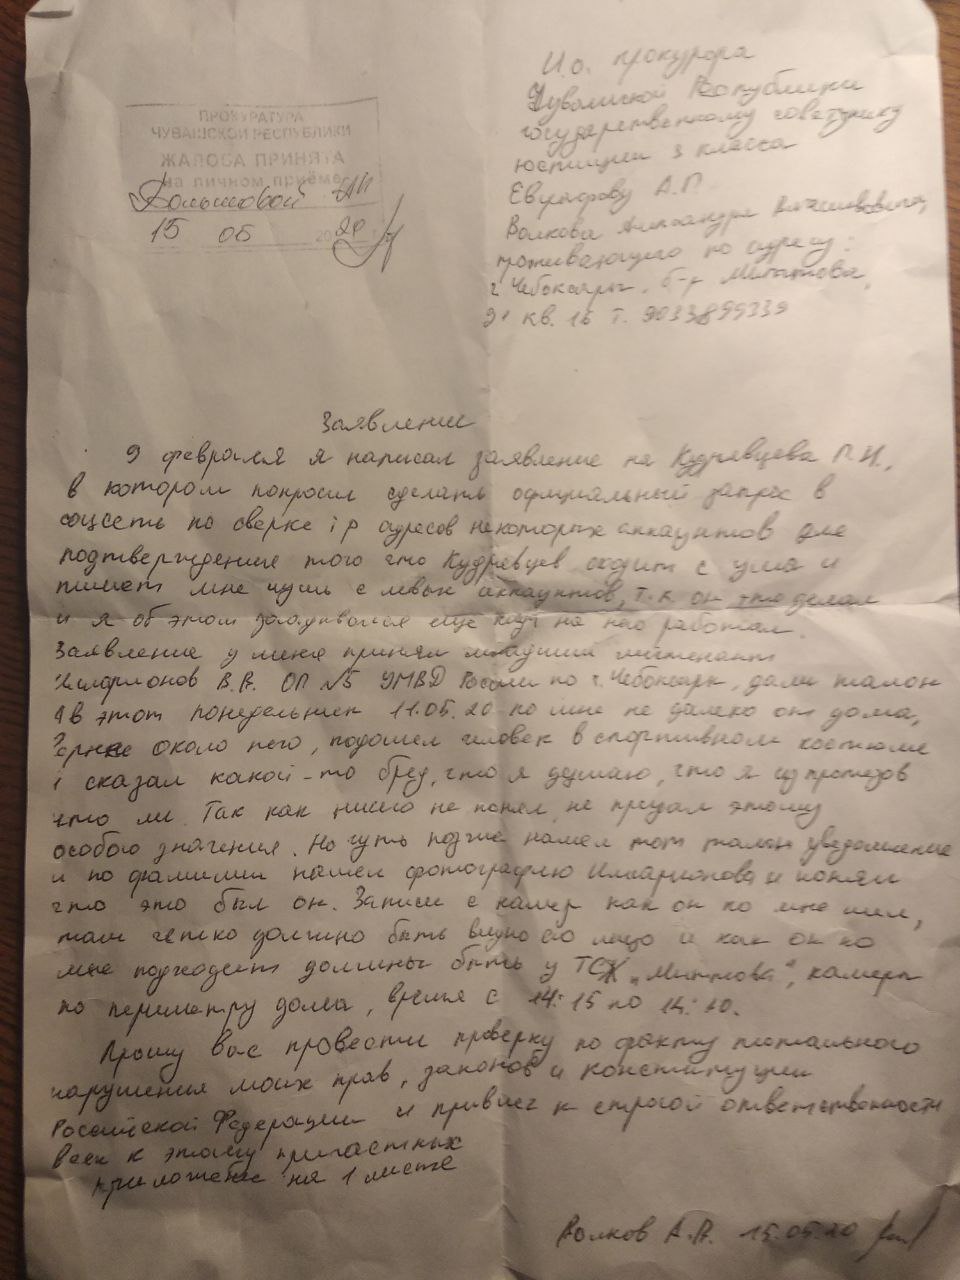 И.о. прокурора
Чувашской Республики
государственному советнику
юстиции 3 класса
Евграфову А.П.
Волкова Александра
проживающего по адресу:
г. Чебоксары, б-р Миттова,
кв. 16 т.
ПРОКУРАТУРА
ЧУВАШСКОЙ РЕСПУБЛИКИ
ЖАЛОБА ПРИНЯТА
на личном приёме
15 05 2020
Заявление
9 февраля я написал заявление на Кудрявцева П.Н.,
в котором попросил сделать официальный запрос в
соцсеть по сверке ip адресов некоторых аккаунтов для
подтверждения того что Кудрявцев сходит с ума и
пишет мне чушь с левых аккаунтов, т.к. он это делал
и я об этом ещё на него работал.
Заявление у меня принял младший лейтенант
Илларионов В.В. ОП №5 УМВД России по г. Чебоксары, дали талон
в этот понедельник 11.05.20 ко мне не далеко от дома,
около него, подошел человек в спортивном костюме
и сказал какой-то бред, что я думаю, что я из протезов
что ли. Так как ничего не понял, не придал этому
особого значения. Но чуть позже нашел тот талон уведомление
и по фамилии нашел фотографию Илларионова и понял
что это был он. Записи с камер как он ко мне шел,
там четко должно быть видно его лицо и как он ко
мне подходит должны быть у ТСЖ "Миттова", камеры
по периметру дома, время с 14:15 по
Прошу вас провести проверку по факту тотального
нарушения моих прав, законов и конституции
Российской Федерации и привлеч к строгой ответственности
всех к этому причастных
приложение на 1 листе
Волков А.В. 15.05.20